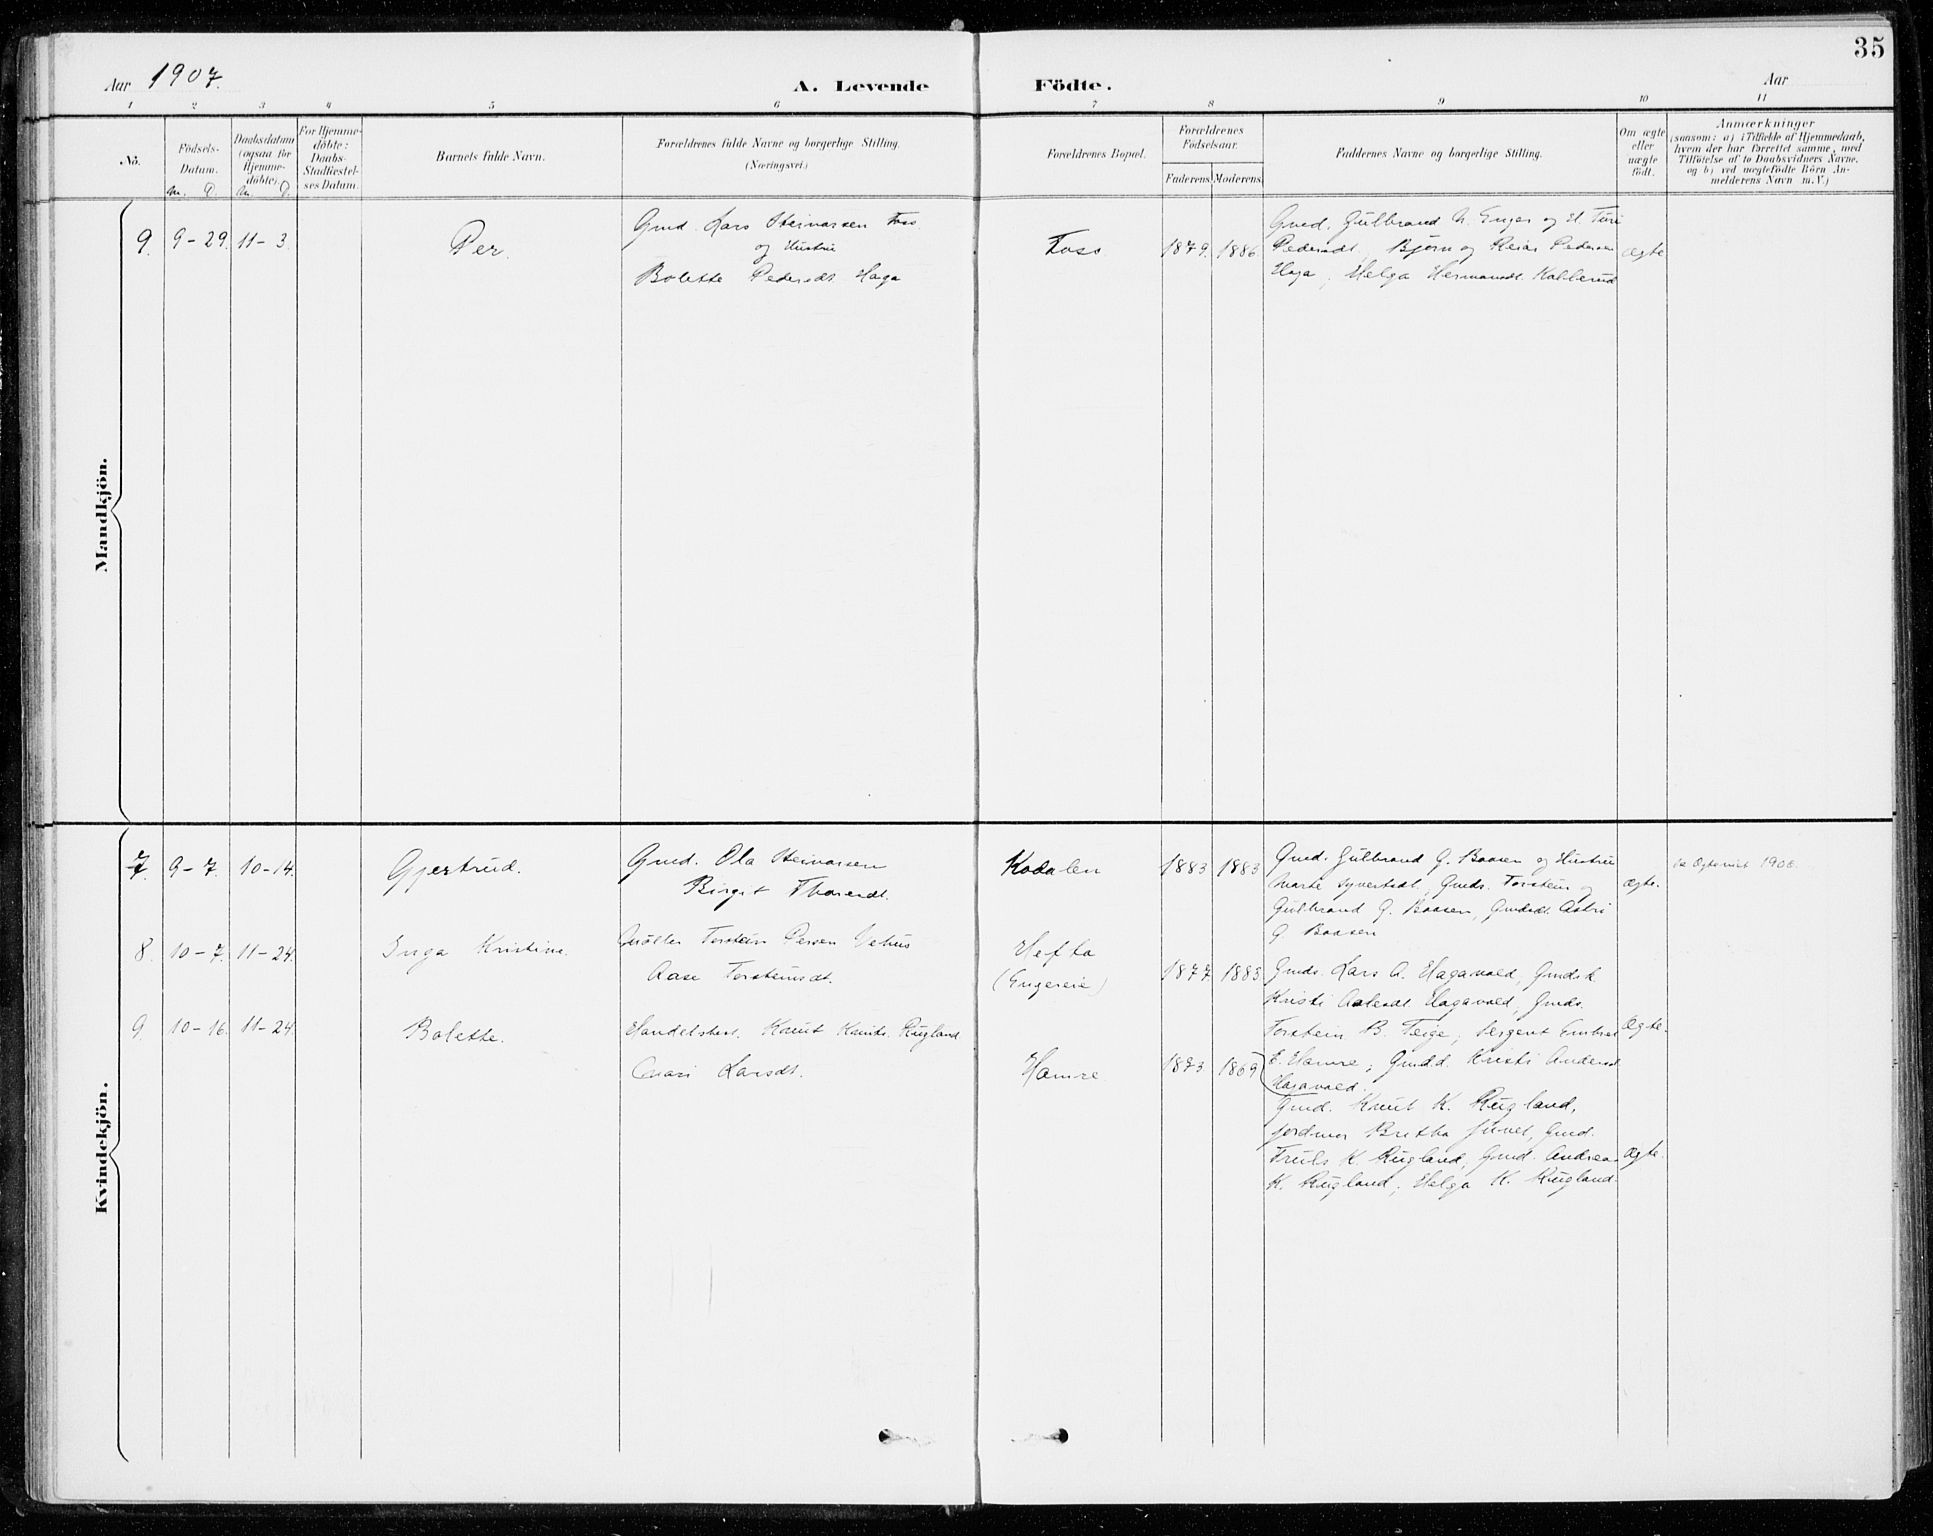 35
Aar 1907.
A. Levende Födte.
Aar
1 2 3 4 5 6 7 8 9 10 11
No.
Födsels-
Datum.
M. D.
Daabsdatum
(ogsaa for
Hjemme-
döbte).
M. D.
For Hjemme-
döbte:
Daabs-
Stadfæstel-
ses Datum.
Barnets fulde Navn.
Forældrenes fulde Navne og borgerlige Stilling.
(Næringsvei.)
Forældrenes Bopæl.
Forældrenes
Födselsaar.
Faderens. Moderens.
Faddernes Navne og borgerlige Stilling.
Om ægte
eller
uægte
födt.
Anmærkninger
(saasom: a) i Tilfælde af Hjemmedaab,
hvem der har forrettet samme, med
Tilföielse af to Daabsvidners Navne.
og b) ved uægtefödte Börn An-
melderens Navn m. V.)
Mandkjön.
9. 9-29. 11-3.
Per.
Gmd. Lars Steinarsen Foss
og Hustru
Bolette Pedersdt. Haga
Foss
1879. 1886.
Gmd. Gulbrand N. Enger og H. Turi
Pedersdt., Bjørn og Reiar Pedersen
Haga; Helga Hermansdt. Kahlerud
Ægte
Kvindekjön.
7. 9-7. 10-14.
Gjertrud.
Gmd. Ola Steinarsen
Birgit Tharsdt.
Kodalen
1883 1883
Gmd. Gulbrand G. Baasen og Hustru
Marte Syvertsdt., Gmds. Torstein og
Gulbrand G. Baasen, Gmdsdt. Astri
G. Baasen
Ægte.
Ægteviet 1906.
8. 10-7. 11-24.
Inga Kristine.
Møller Torstein Persen Vehus
Aase Torsteinsdt.
Hefta
(Engereie)
1877. 1883
Gmds. Lars A. Hagavold, Gmdsk.
Kristi Hagavold, Gmds.
Torstein B. Teige, Sergent Embret
E. Hamre; Gmdd. Kristi Andersd.
Hagavold.
Ægte.
9. 10-16. 11-24.
Bolette.
Handelsbest. Knut Knuds. Rugland
Mari Larsdt.
Hamre
1873 1869
Gmd. Knut K. Rugland,
Jordmor Britha Juvet, Gmd.
Truls K. Rugland, Gmd. Andreas
K. Rugland; Helga K. Rugland.
Ægte.